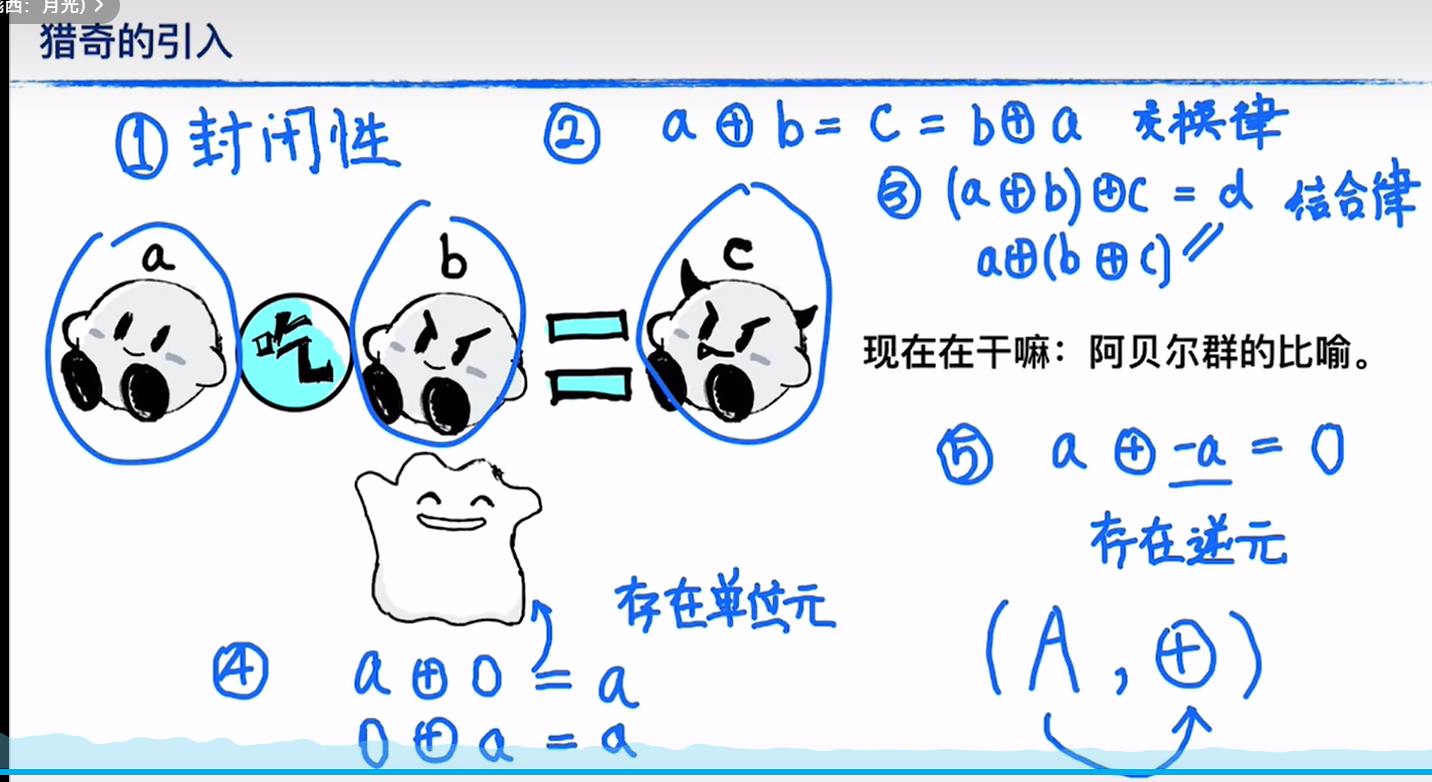 西：月光) >
猎奇的引入
① 封闭性
② a ⊕ b = c = b ⊕ a 交换律
③ (a ⊕ b) ⊕ c = d 结合律
a ⊕ (b ⊕ c) //
a
b
c
吃
现在在干嘛：阿贝尔群的比喻。
⑤ a ⊕ -a = 0
存在逆元
存在单位元
④ a ⊕ 0 = a
0 ⊕ a = a
(A , ⊕)